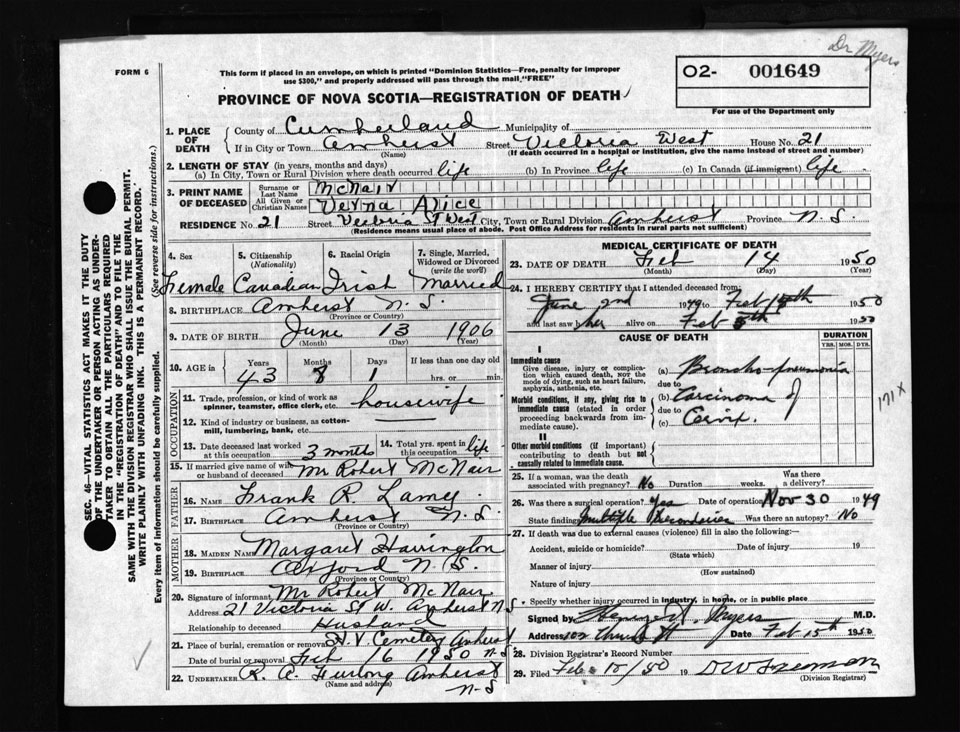 Dr Myers
FORM 6
This form if placed in an envelope, on which is printed "Dominion Statistics—Free, penalty for improper
use $300," and properly addressed will pass through the mail "FREE"
O2- 001649
For use of the Department only
PROVINCE OF NOVA SCOTIA—REGISTRATION OF DEATH
SEC. 46—VITAL STATISTICS ACT MAKES IT THE DUTY
OF THE UNDERTAKER OR PERSON ACTING AS UNDER-
TAKER TO OBTAIN ALL THE PARTICULARS REQUIRED
IN THE "REGISTRATION OF DEATH" AND TO FILE THE
SAME WITH THE DIVISION REGISTRAR WHO SHALL ISSUE THE BURIAL PERMIT.
WRITE PLAINLY WITH UNFADING INK. THIS IS A PERMANENT RECORD.
Every item of information should be carefully supplied. (See reverse side for instructions.)
1. PLACE OF DEATH County of Cumberland Municipality of
If in City or Town Amherst Street Victoria West House No. 21
(Name) (If death occurred in a hospital or institution, give the name instead of street and number)
2. LENGTH OF STAY (in years, months and days)
(a) In City, Town or Rural Division where death occurred life (b) In Province life (c) In Canada (if immigrant) life
3. PRINT NAME OF DECEASED Surname or Last Name McNair
All Given or Christian Names Verna Alice
RESIDENCE No. 21 Street Victoria St West City, Town or Rural Division Amherst Province N.S.
(Residence means usual place of abode. Post Office Address for residents in rural parts not sufficient)
4. Sex 5. Citizenship (Nationality) 6. Racial Origin 7. Single, Married, Widowed or Divorced (write the word)
Female Canadian Irish Married
8. BIRTHPLACE Amherst N.S.
(Province or Country)
9. DATE OF BIRTH June 13 1906
(Month) (Day) (Year)
10. AGE in Years Months Days If less than one day old
43 8 1 hrs. or min.
OCCUPATION
11. Trade, profession, or kind of work as spinner, teamster, office clerk, etc. housewife
12. Kind of industry or business, as cotton-mill, lumbering, bank, etc.
13. Date deceased last worked at this occupation 3 months 14. Total yrs. spent in this occupation life
15. If married give name of wife or husband of deceased Mr Robert McNair
FATHER
16. Name Frank R. Lamey
17. BIRTHPLACE Amherst N.S.
(Province or Country)
MOTHER
18. MAIDEN NAME Margaret Harrington
19. BIRTHPLACE Oxford N.S.
(Province or Country)
20. Signature of informant Mr Robert McNair
Address 21 Victoria St W. Amherst N S
Relationship to deceased Husband
21. Place of burial, cremation or removal H.V. Cemetery Amherst
Date of burial or removal Feb 16 1950 N-S
22. UNDERTAKER R. A. Furlong Amherst
(Name and address) N-S
MEDICAL CERTIFICATE OF DEATH
23. DATE OF DEATH Feb 14 1950
(Month) (Day) (Year)
24. I HEREBY CERTIFY that I attended deceased from:
June 2nd 1949 to Feb 1950
and last saw her alive on Feb 1950
CAUSE OF DEATH DURATION
YRS. MOS. DYS.
I
Immediate cause
Give disease, injury or complication which caused death, not the mode of dying, such as heart failure, asphyxia, asthenia, etc.
(a) Broncho-pneumonia
due to
Morbid conditions, if any, giving rise to immediate cause (stated in order proceeding backwards from immediate cause).
(b) Carcinoma of
due to
(c) Cervix
171 X
II
Other morbid conditions (if important) contributing to death but not causally related to immediate cause.
25. If a woman, was the death associated with pregnancy? No Duration weeks. Was there a delivery?
26. Was there a surgical operation? Yes Date of operation Nov 30 1949
State finding Multiple Secondaries Was there an autopsy? No
27. If death was due to external causes (violence) fill in also the following:—
Accident, suicide or homicide? Date of injury 19
(State which)
Manner of injury
(How sustained)
Nature of injury
Specify whether injury occurred in industry, in home, or in public place
Signed by Myers M.D.
Address Church St Date Feb 15th 1950
28. Division Registrar's Record Number
29. Filed Feb 15/50 19 D W Freeman
(Division Registrar)